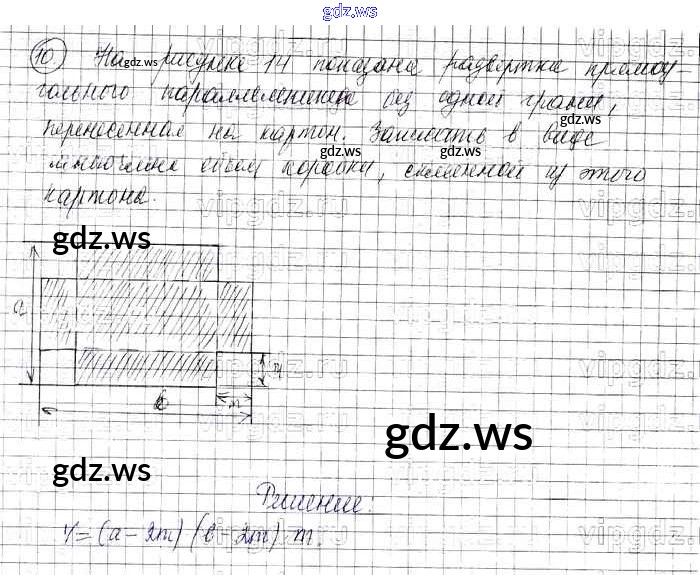 gdz.ws
10) На рисунке 14 показана развёртка прямоу-
гольного параллелепипеда без одной грани,
перенесенная на картон. Записать в виде
многочлена объем коробки, склеенной из этого
картона.
gdz.ws
gdz.ws
gdz.ws
gdz.ws
gdz.ws
a
m
b
m
gdz.ws
gdz.ws
Решение:
V = (a - 2m) (b - 2m) m.
vipgdz.ws